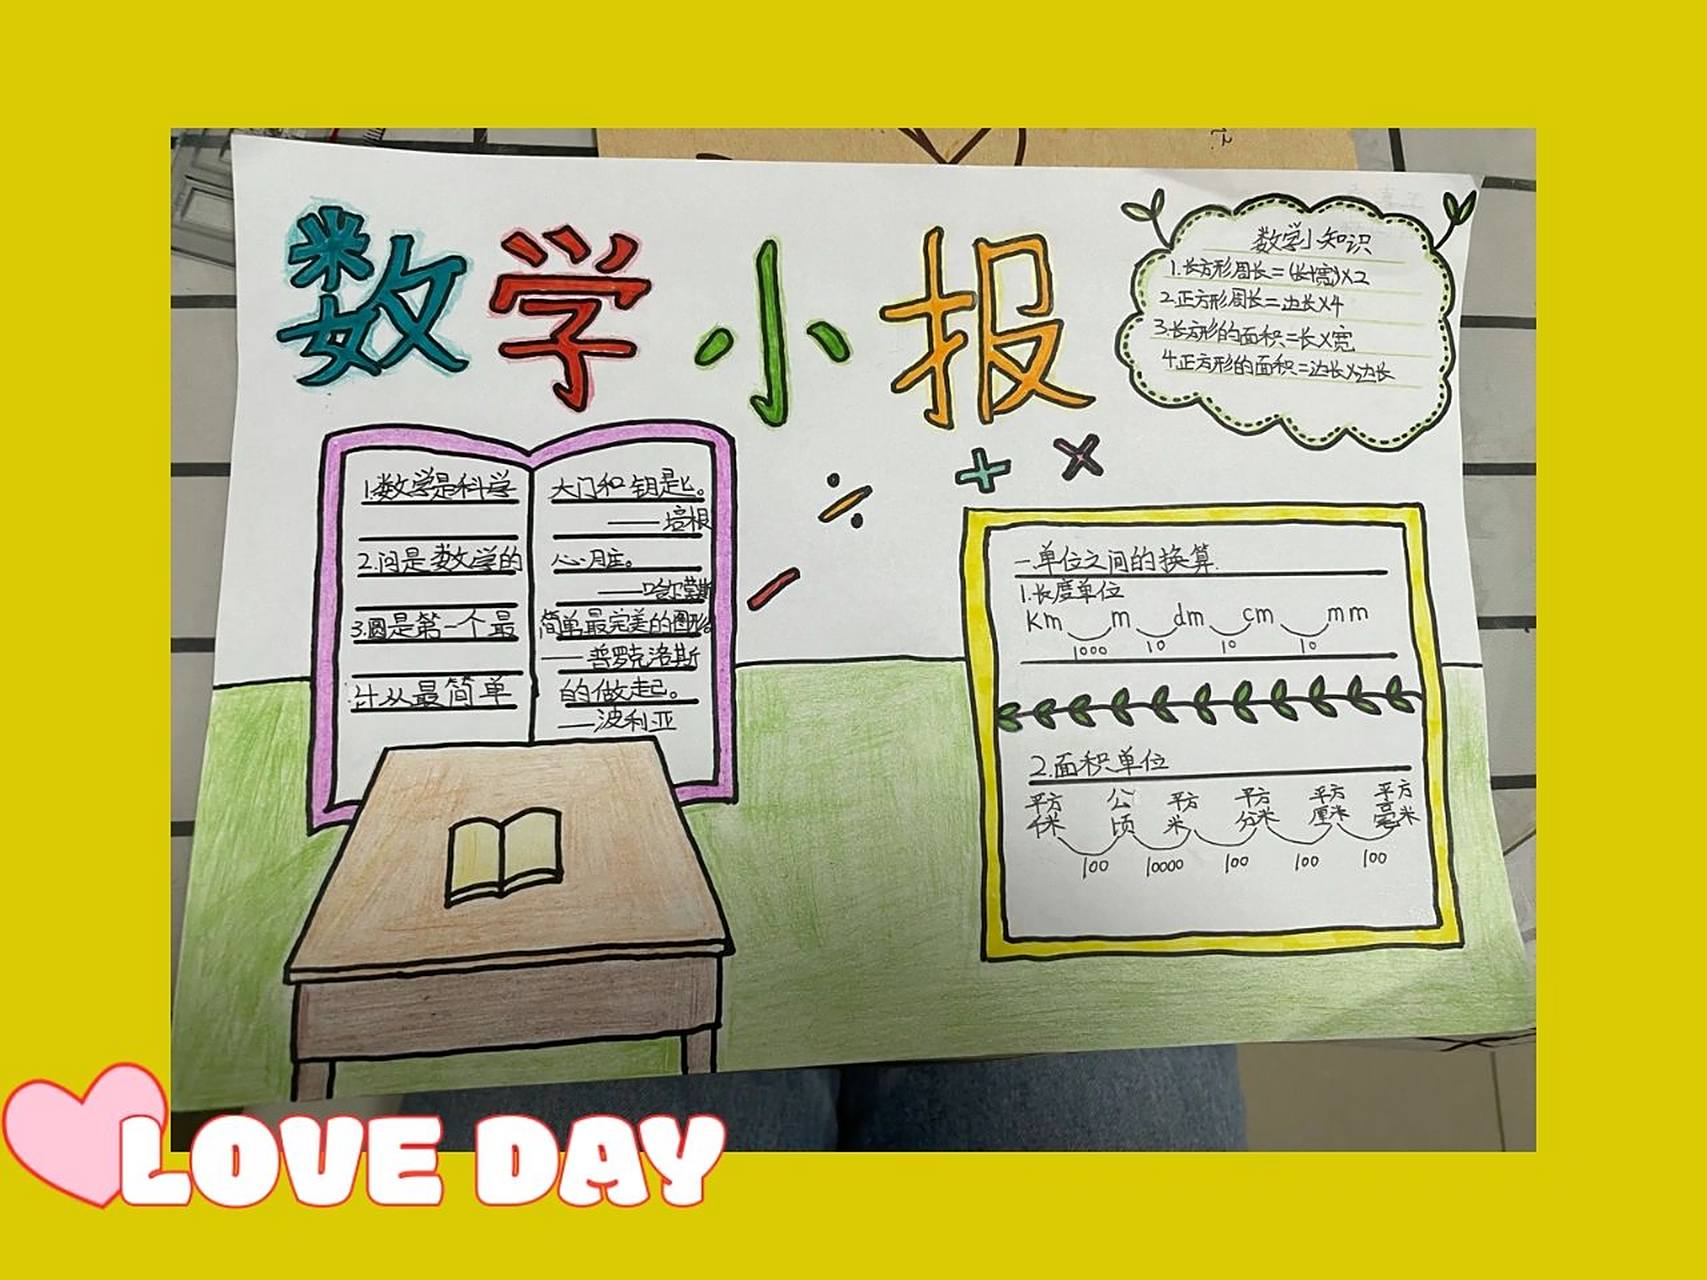 数学小报
数学小知识
1.长方形周长=(长+宽)×2
2.正方形周长=边长×4
3.长方形的面积=长×宽
4.正方形的面积=边长×边长
1.数学是科学
大门和钥匙。
——培根
2.问是数学的
心脏。
——哈尔蒙斯
3.圆是第一个最
简单,最完美的图形。
——普罗克洛斯
计从最简单
的做起。
——波利亚
一.单位之间的换算.
1.长度单位
Km m dm cm mm
1000 10 10 10
2.面积单位
平方千米 公顷 平方米 平方分米 平方厘米 平方毫米
100 10000 100 100 100
LOVE DAY